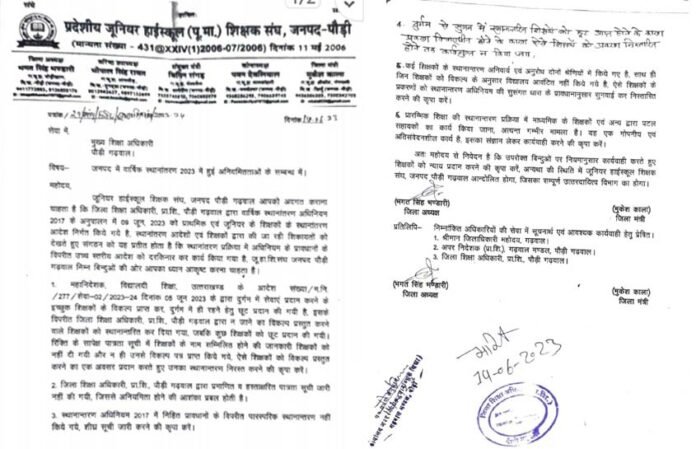 प्रदेशीय जूनियर हाईस्कूल (पू.मा.) शिक्षक संघ, जनपद-पौड़ी
(मान्यता संख्या - 431@XXIV(1)2006-07/2006) दिनांक 11 मई 2006
सेवा में,
मुख्य शिक्षा अधिकारी
पौड़ी गढ़वाल।
विषय- जनपद में वार्षिक स्थानान्तरण 2023 में हुई अनियमितताओं के सम्बन्ध में।
महोदय,
जूनियर हाईस्कूल शिक्षक संघ, जनपद पौड़ी गढ़वाल आपको अवगत कराना
चाहता है कि जिला शिक्षा अधिकारी, प्रा.शि. पौड़ी गढ़वाल द्वारा वार्षिक स्थानान्तरण अधिनियम
2017 के अनुपालन में 09 जून, 2023 को प्राथमिक एवं जूनियर के शिक्षकों के स्थानान्तरण
आदेश निर्गत किये गये है, स्थानान्तरण आदेशों एवं शिक्षकों द्वारा की जा रही शिकायतों को
देखते हुए संगठन को यह प्रतीत होता है कि स्थानान्तरण प्रक्रिया में अधिनियम के प्रावधानों के
विपरीत उच्च स्तरीय आदेश को दरकिनार कर कार्य किया गया है, जू.हा.शि.संघ पौड़ी
गढ़वाल निम्न बिन्दुओं की ओर आपका ध्यान आकृष्ट करना चाहता है।
1. महानिदेशक, विद्यालयी शिक्षा, उत्तराखण्ड के आदेश संख्या/म.नि.
/277/सेवा-02/2023-24 दिनांक 05 जून 2023 के द्वारा दुर्गम में सेवाएं प्रदान करने के
इच्छुक शिक्षकों के विकल्प प्राप्त कर, दुर्गम में ही रहने हेतु छूट प्रदान की गयी है, इसके
विपरीत जिला शिक्षा अधिकारी, प्रा.शि. पौड़ी गढ़वाल द्वारा न जाने का विकल्प प्रस्तुत करने
वाले शिक्षकों को स्थानान्तरित कर दिया गया, जबकि कुछ शिक्षकों को छूट प्रदान की गयी।
रिक्ति के सापेक्ष पात्रता सूची में शिक्षकों के नाम सम्मिलित होने की जानकारी शिक्षकों को
नहीं दी गयी और न ही उनसे विकल्प पत्र प्राप्त किये गये, ऐसे शिक्षकों को विकल्प प्रस्तुत
करने का एक अवसर प्रदान करते हुए उनका स्थानान्तरण निरस्त करने की कृपा करें।
2. जिला शिक्षा अधिकारी, प्रा.शि., पौड़ी गढ़वाल द्वारा प्रमाणित व हस्ताक्षरित पात्रता सूची जारी
नहीं की गयी, जिससे अनियमिता होने की आशंका प्रबल होती है।
3. स्थानान्तरण अधिनियम 2017 में निहित प्रावधानों के विपरीत पारस्परिक स्थानान्तरण नहीं
किये गये, शीघ्र सूची जारी करने की कृपा करें।
5. कई शिक्षकों के स्थानान्तरण अनिवार्य एवं अनुरोध दोनों श्रेणियों में किये गए है, साथ ही
जिन शिक्षकों को विकल्प के अनुसार विद्यालय आवंटित नहीं किये गये है, ऐसे शिक्षकों के
प्रकरणों को स्थानान्तरण अधिनियम की सुसंगत धारा के प्राविधानानुसार सुनवाई कर निस्तारित
करने की कृपा करें।
6. प्रारम्भिक शिक्षा की स्थानान्तरण प्रक्रिया में माध्यमिक के शिक्षकों एवं अन्य द्वारा पटल
सहायकों का कार्य किया जाना, अत्यन्त गम्भीर मामला है। यह एक गोपनीय एवं
अतिसंवेदनशील कार्य है, इसका संज्ञान लेकर कार्यवाही करने की कृपा करें।
अतः महोदय से निवेदन है कि उपरोक्त बिन्दुओं पर नियमानुसार कार्यवाही करते हुए
शिक्षकों को न्याय प्रदान करने की कृपा करें, अन्यथा की स्थिति में जूनियर हाईस्कूल शिक्षक
संघ, जनपद पौड़ी गढ़वाल आन्दोलित होगा, जिसका सम्पूर्ण उत्तरदायित्व विभाग का होगा।
(भगत सिंह भण्डारी)
जिला अध्यक्ष
(मुकेश काला)
जिला मंत्री
प्रतिलिपि- निम्नांकित अधिकारियों की सेवा में सूचनार्थ एवं आवश्यक कार्यवाही हेतु प्रेषित।
1. श्रीमान जिलाधिकारी महोदय, गढ़वाल।
2. अपर निदेशक (प्रा.शि.), गढ़वाल मण्डल, पौड़ी गढ़वाल।
3. जिला शिक्षा अधिकारी, प्रा.शि., पौड़ी गढ़वाल।
(भगत सिंह भण्डारी)
जिला अध्यक्ष
(मुकेश काला)
जिला मंत्री
14-06-2023